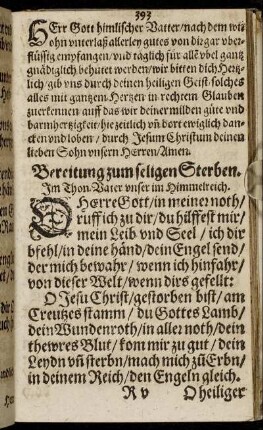 393
HErr Gott himlischer Vatter/nach dem wir
ohn vnterlaß allerley gutes von dir gar vber-
flüssig empfangen/vnd täglich für allē vbel gantz
gnädiglich behütet werden/wir bitten dich Hertz-
lich/gib vns durch deinen heiligen Geist/solches
alles mit gantzem Hertzen in rechtem Glauben
zuerkennen/auff das wir deiner milden güte vnd
barmhertzigkeit/hie zeitlich vñ dort ewiglich dan-
cken vnd loben/durch Jesum Christum deinen
lieben Sohn vnsern Herren/Amen.
Bereitung zum seligen Sterben.
Im Thon/Vater vnser im Himmelreich.
O HErre Gott/in meiner noth/
ruff ich zu dir/du hilffest mir/
mein Leib vnd Seel/ich dir
bfehl/in deine händ/dein Engel send/
der mich bewahr/wenn ich hinfahr/
von dieser Welt/wenn dirs gefellt:
O Jesu Christ/gestorben bist/am
Creutzes stamm/du Gottes Lamb/
dein Wunden roth/in aller noth/dein
thewres Blut/kom mir zu gut/dein
Leydn vñ sterbn/mach mich zū Erbn/
in deinem Reich/den Engeln gleich.
R v O heiliger